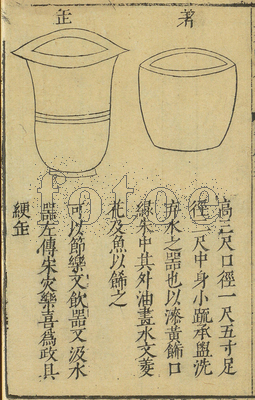 缶
高三尺口徑一尺五寸足
徑一尺中身小疏承盥洗
弃水之器也以漆黃飾口
緣朱中其外油畫水文菱
花及魚以飾之
可以節樂又飲器又汲水
器左傳宋灾樂喜爲政具
綆缶
fotoe